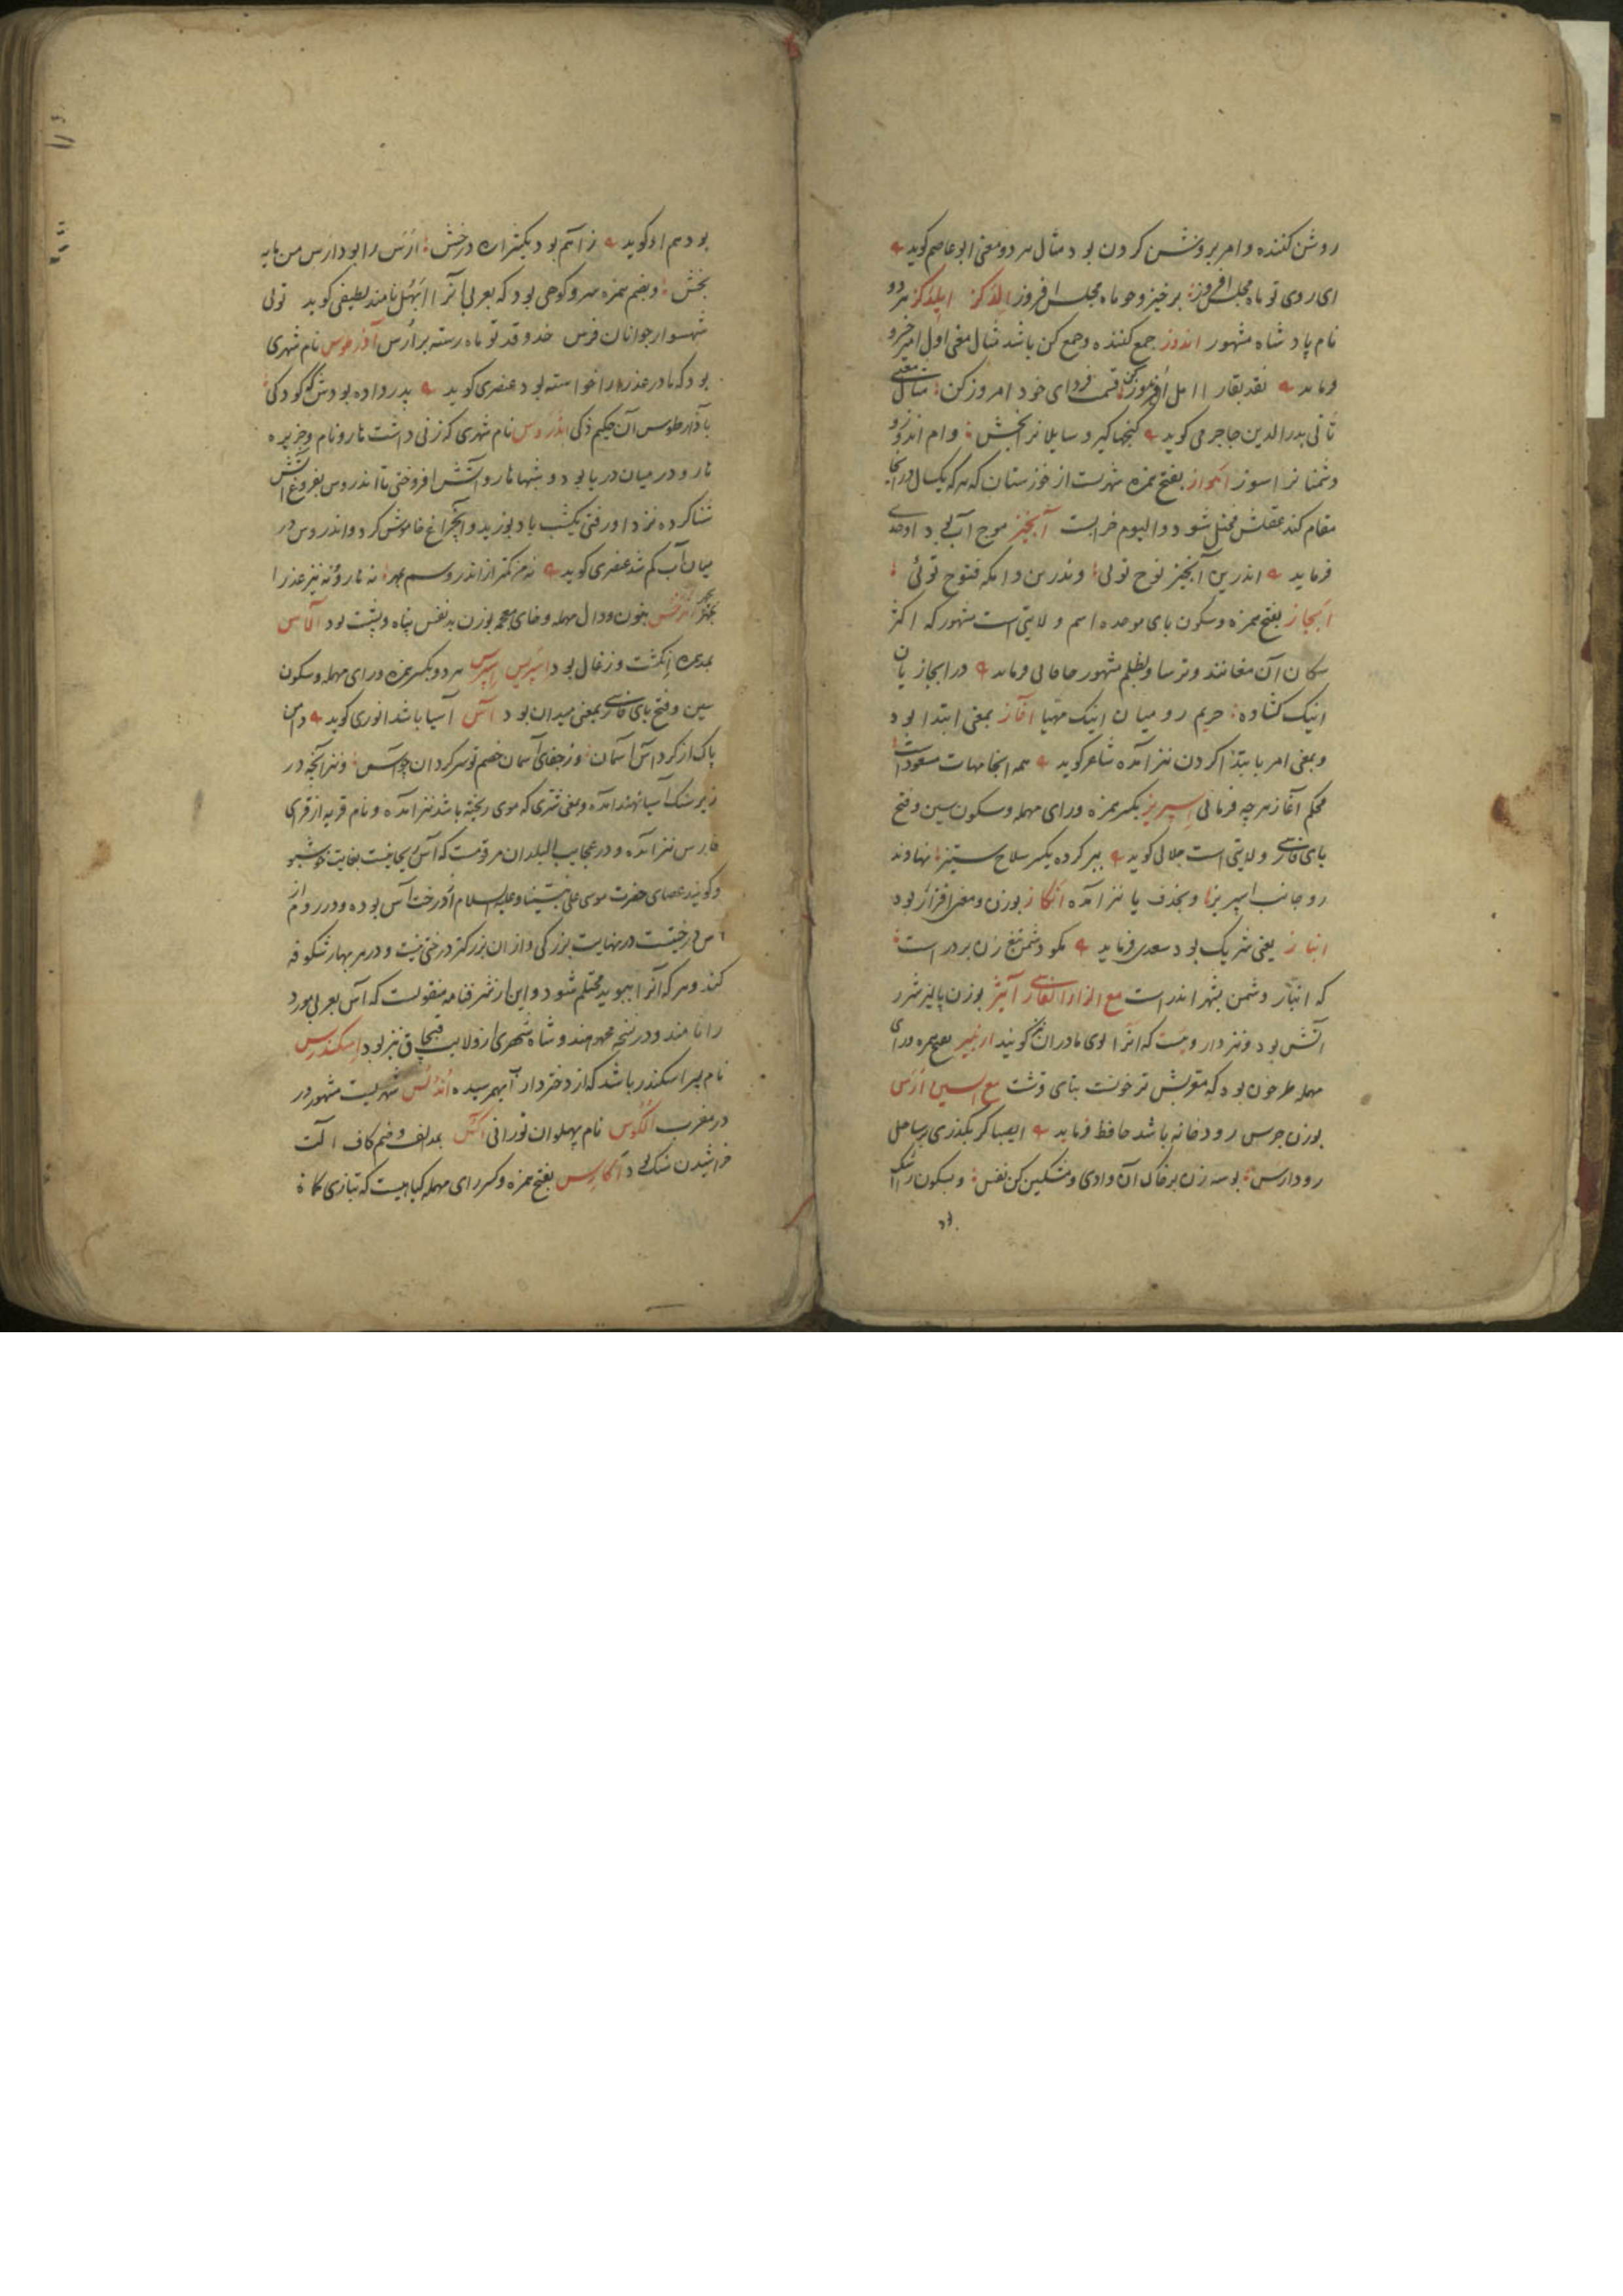 روشن کننده و امر بروشن کردن بود مثال هر دو معنی ابو عاصم گوید
ای روی تو ماه مجلس افروز برخیز و چو ماه مجلس افروز ایلدکز هر دو
نام پادشاه مشهور اندوز جمع کننده و جمع کن باشد مثال معنی اول امیر خسرو
فرماید نقد بقا را امل قسمت فردای خود امروز کن مثال معنی
ثانی بدرالدین جاجرمی گوید گنجها گیر و سایلانرا بخش وام اندوز و
دشمنانرا سوز اهواز بفتح همزه شهریست از خوزستان که هر که یکسال در آنجا
مقام کند عقلش مختل شود و الیوم خرابست آبخیز موج آب بود اوحدی
فرماید اندرین آبخیز نوح توئی وندرین دامگه فتوح توئی
ابخاز بفتح همزه و سکون بای موحده اسم ولایتی است مشهور که اکثر
سکان آن مغانند و ترسا و بظلم مشهور خاقانی فرماید در ابخازیان
اینک گشاده حریم رومیان اینک مهیا آغاز بمعنی ابتدا بود
و بمعنی امر بابتدا کردن نیز آمده شاعر گوید همه انجامهات مسعود است
محکم آغاز هر چه فرمائی اسپریز بکسر همزه و رای مهمله و سکون سین و فتح
بای فارسی ولایتی است جلالی گوید ببر کرده یکسر سلاح ستیز نهادند
رو جانب اسپریز و بحذف یا نیز آمده انگاز بوزن و معنی افزار بود
انباز یعنی شریک بود سعدی فرماید مگو دشمن تیغ زن بر در است
که انباز دشمن بشهر اندر است مع الزاء الفارسی آییژ بوزن پالیز شرر
آتش بود و نیز دارویست که آنرا بوی مادران نیز گویند بفتح همزه و رای
مهمله طرخون بود که مع السین ارس
بوزن جرس رودخانه باشد حافظ فرماید ای صبا گر بگذری بر ساحل
رود ارس بوسه زن بر خاک آن وادی و مشکین کن نفس و بسکون را اشک
بود هم او گوید ز آتم بود یکهزاران درخش ارس را بود ارس من مایه
بخش و بضم همزه سرو کوهی بود که بعربی آنرا ابهل نامند لطیفی گوید توئی
شهسوار جوانان فرس خد و قد تو ماه رسته بر ارس آذرطوس نام شهری
بود که مادر عذرا را خواسته بود عنصری گوید پدر داده بودش گه کودکی
بآذرطوس آن حکیم ذکی اندروس نام شهری که زنی داشت نارو نام و جزیره
نارو در میان دریا بود و شبها نارو آتش افروختی تا اندروس بفروغ آتش
شنا کرده نزد او رفتی یکشب باد بوزید و آن چراغ خاموش کرد و اندروس در
میان آب گم شد عنصری گوید نه من کمتر از اندروسم بمهر نه نارو نه نیز عذرا
بچهر بنون و دال مهمله و خای معجمه بوزن بدنفس پناه و پشت بود آلاس
بمد همزه انگشت و زغال بود اسپریس اسپرس هر دو بکسر همزه و رای مهمله و سکون
سین و فتح بای فارسی بمعنی میدان بود آس آسیا باشد انوری گوید دامن
پاک از گرد آس آسمان وز جفای آسمان خصم تو سرگردان چو آس و نیز آنچه در
زیر سنک آسیا نهند آمده و بمعنی شتری که موی ریخته باشد نیز آمده و نام قریه از قرای
فارس نیز آمده و در عجایب البلدان مرقومست که آس ریحانیست بغایت خوشبو
و گویند عصای حضرت موسی علی نبینا و علیه السلام از درخت آس بوده و در روم از
آس درختیست در نهایت بزرگی و از آن بزرگتر درختی نیست و در هر بهار شکوفه
کند و هر که آنرا ببوید محتلم شود و این از شرفنامه منقولست که آس بعربی مورد
را نامند و در نسخه میرزا نام شهری از ولایت قبچاق نیز بود اسکندروس
نام پسر اسکندر باشد که از دختر دارا بهم رسیده اندلس شهریست مشهور در
در مغرب الکوس نام پهلوان تورانی آکس بمد الف و ضم کاف آلت
خراشیدن سنک بود آکارس بفتح همزه و کسر رای مهمله گیاهیست که بتازی کماة